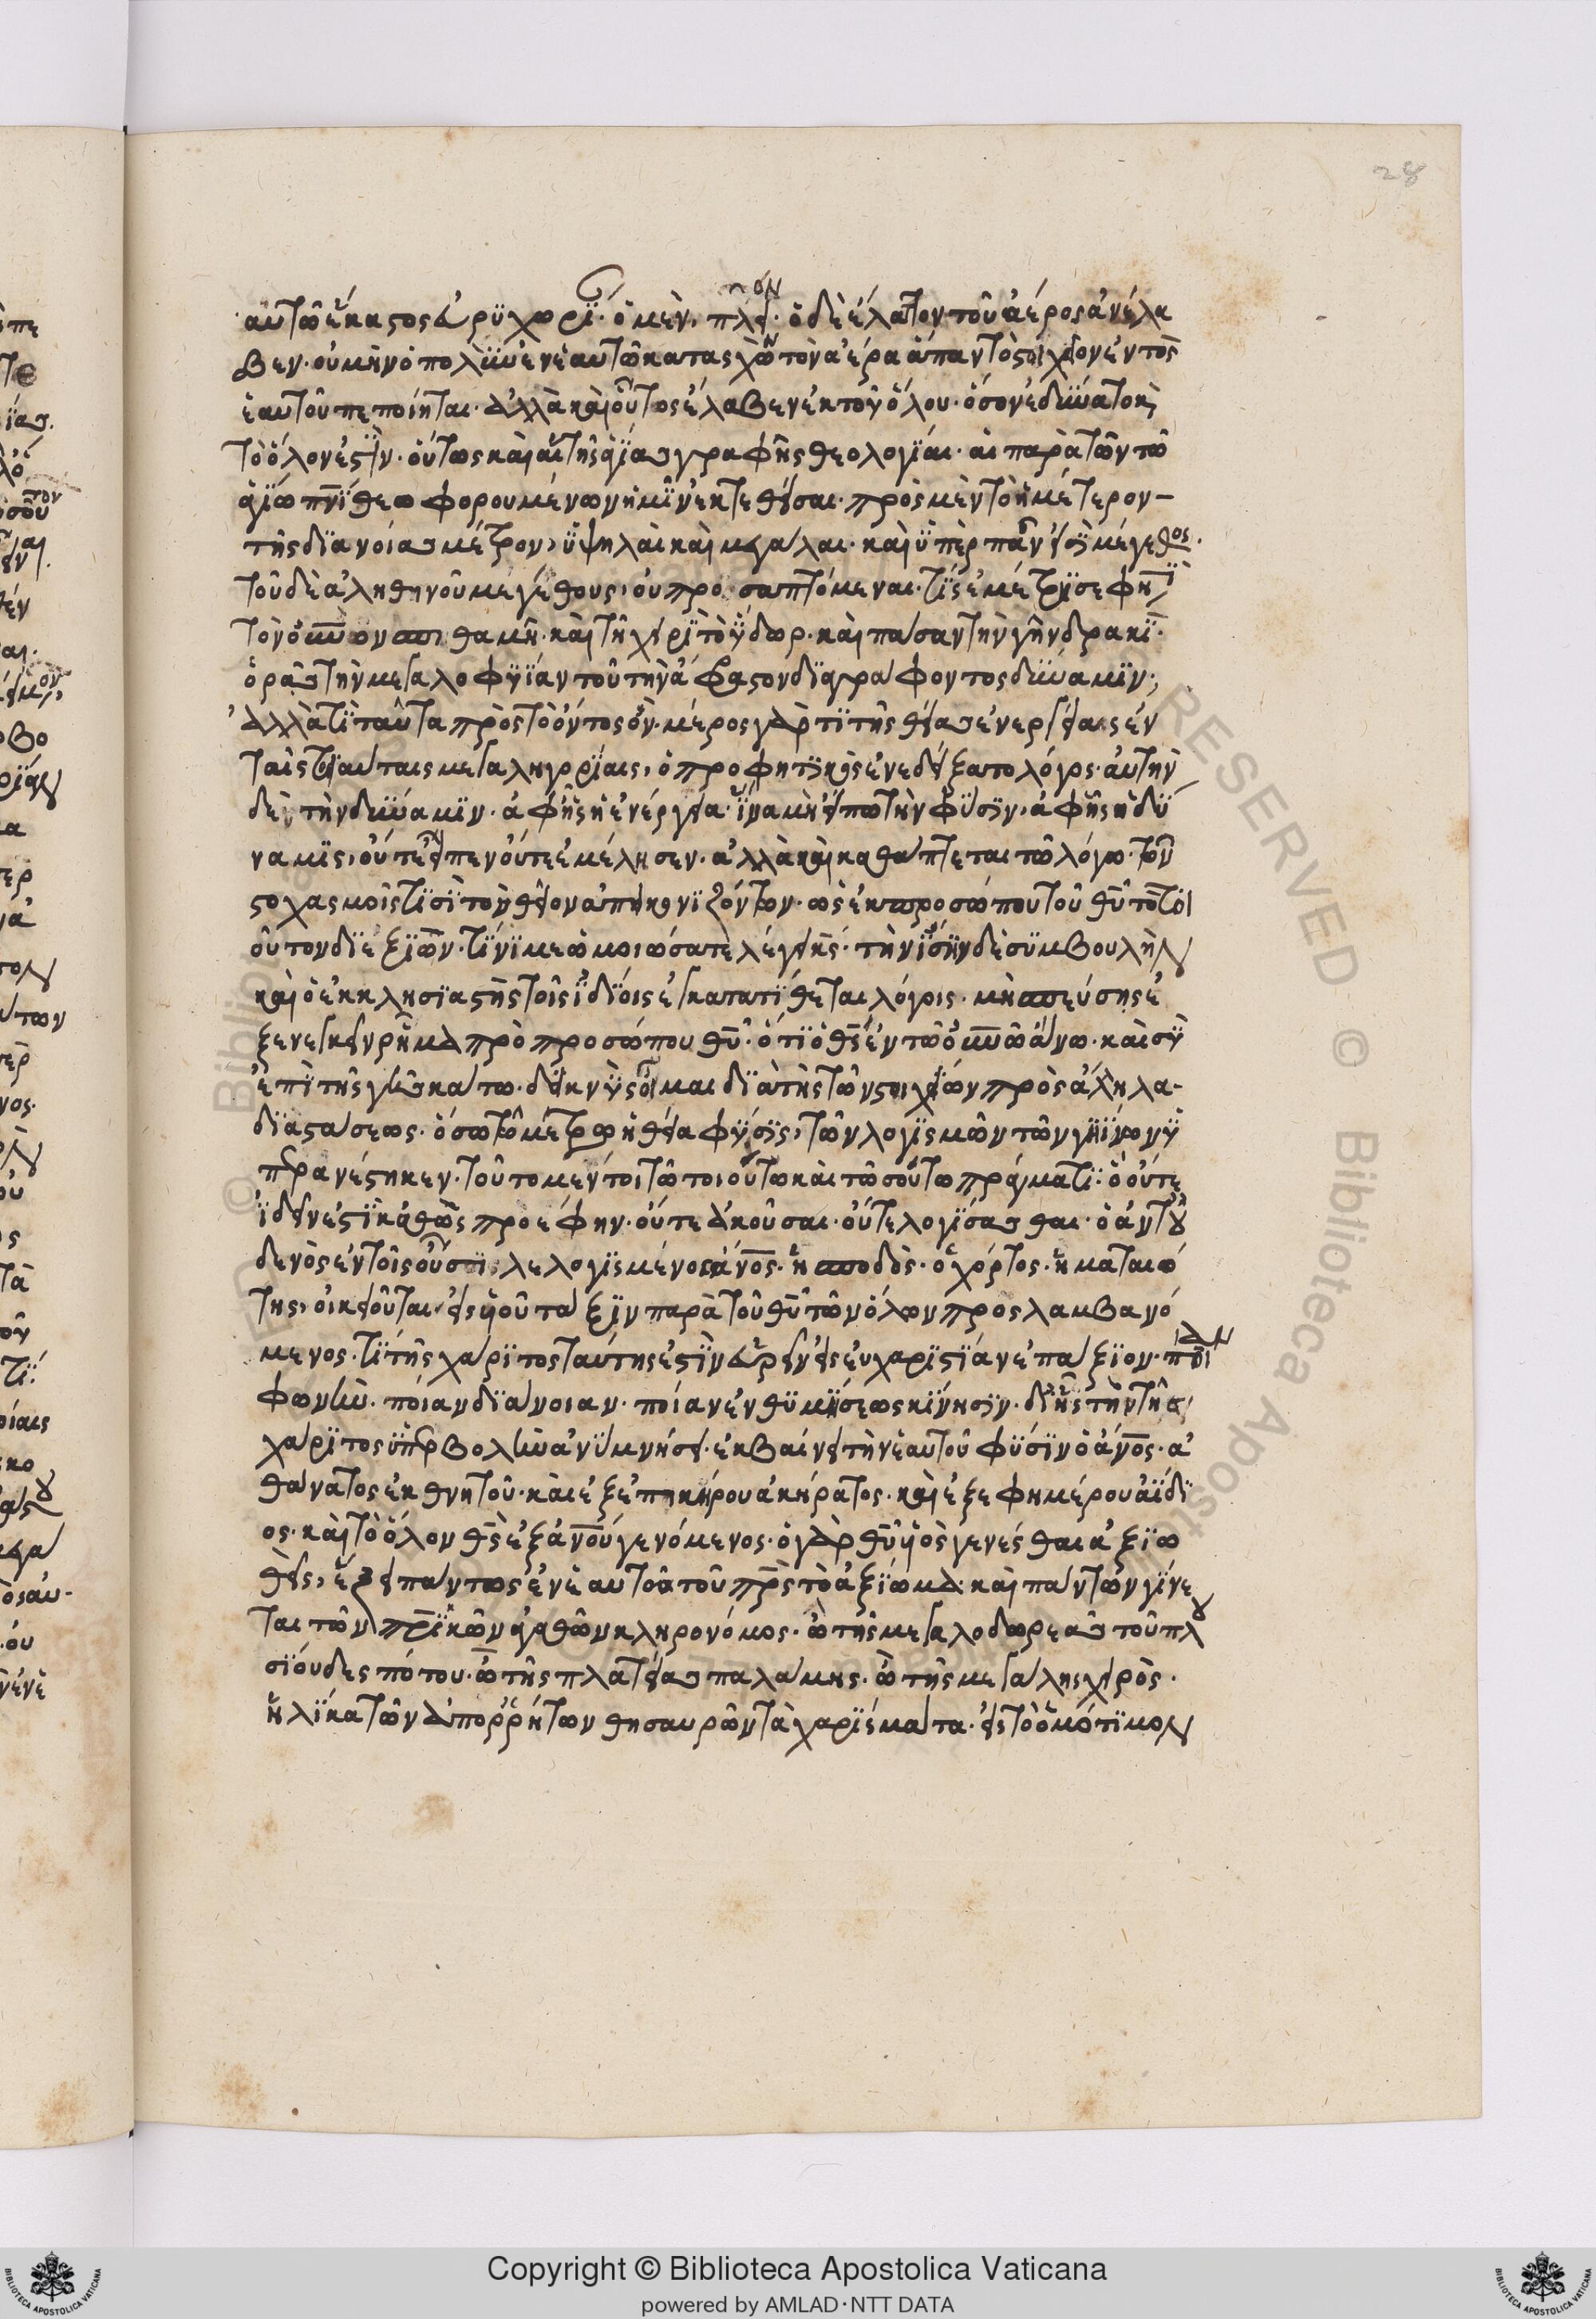 28
αὐτῶ ἕκαστος εὐρυχωρεῖ· ὁ μὲν, πλεῖον· ὁ δὲ ἔλαττον τοῦ ἀέρος ἀνέλα
βεν· οὐ μὴν ὁ πολὺν ἐν ἑαυτῶ κατασχὼν τὸν ἀέρα ἅπαν τὸ στοιχεῖον ἐντὸς
ἑαυτοῦ πεποίηται· ἀλλὰ καὶ οὗτος ἔλαβεν ἐκ τοῦ ὅλου· ὅσον ἐδύνατο καὶ
τὸ ὅλον ἐστὶν· οὕτως καὶ αἱ τῆς ἁγίας γραφῆς θεολογίαι· αἱ παρὰ τῶν τῶ
ἁγίω πνϊ θεωφορουμένων ἡμῖν ἐκτεθεῖσαι· πρὸς μὲν τὸ ἡμέτερον
τῆς διανοίας μέτρον, ὑψηλαὶ καὶ μεγάλαι· καὶ ὑπὲρ πᾶν εἰσὶ μέγεθος·
τοῦ δὲ ἀληθηνοῦ μεγέθους, οὐ προσαπτόμεναι· τίς ἐμέτρισε φησὶ
τὸν οὐνον σπιθαμῆ· καὶ τῆ χειρὶ τὸ ὕδωρ· καὶ πάσαν τὴν γῆν δρακί·
ὁρᾶς τὴν μεγαλοφυΐαν τοῦ τὴν ἄφραστον διαγράφοντος δύναμιν;
ἀλλὰ τί ταῦτα πρὸς τὸ ὄντως ὂν· μέρος γὰρ τι τῆς θείας ἐνεργείας ἐν
ταῖς τοιαύταις μεγαληγορίαις, ὁ προφητικὸς ἐνεδείξατο λόγος· αὐτὴν
δὲ τὴν δύναμιν· ἀφ' ἧς ἡ ἐνέργεια· ἵνα μὴ εἴπω τὴν φύσιν, ἀφ' ἧς ἡ δύ
ναμις, οὔτε εἶπεν οὔτε ἐμέλησεν· ἀλλὰ καὶ καθάπτεται τῶ λόγω· τῶν
στοχασμοῖς τισὶ τὸν θεῖον ἀπεικονιζόντων· ὡς ἐκ προσώπου τοῦ θῦ τὸ τοι
οῦτον διεξιὼν· τίνι με ὡμοιώσατε λέγει κς· τὴν ἴσην δὲ συμβουλὴν
καὶ ὁ ἐκκλησιαστὴς τοῖς ἰδίοις ἐγκατατίθεται λόγοις· μὴ σπεύσης ἐ
ξενεγκεῖν ῥῆμα πρὸ προσώπου θῦ· ὅτι ὁ θς ἐν τῶ οὐνῶ ἄνω· καὶ σὺ
ἐπὶ τῆς γῆς κάτω· δεικνὺς οἶμαι διὰ τῆς τῶν στοιχείων πρὸς ἄλληλα
διαστάσεως· ὅσω τῶ μέτρω ἡ θεία φύσις, τῶν λογισμῶν τῶν γηΐνων ὑ
περανέστηκεν· τοῦτο μέντοι τῶ τοιούτω καὶ τῶ σούτω πράγματι· ὃ οὔτε
ἰδεῖν ἐστὶ καθὼς προέφην· οὔτε ἀκοῦσαι· οὔτε λογίσασθαι· ὁ ἀντ' οὐ
δενὸς ἐν τοῖς οὖσιν λελογισμένος ἄνος· ἡ σποδὸς· ὁ χόρτος· ἡ ματαιό
της, οἰκειοῦται· εἰς υἱοῦ τάξιν παρὰ τοῦ θῦ τῶν ὅλων προσλαμβανό
μενος· τί τῆς χάριτος ταύτης ἐστὶν εὑρεῖν εἰς εὐχαριστίαν ἐπάξιον· ποίαν
φωνὴν· ποίαν διάνοιαν· ποίαν ἐνθυμήσεως κίνησιν· δι' ἧς τὴν τῆς
χάριτος ὑπερβολὴν ἀνυμνήσει· ἐκβαίνει τὴν ἑαυτοῦ φύσιν ὁ ἄνος· ἀ
θάνατος ἐκ θνητοῦ· καὶ ἐξ ἐπικήρου ἀκήρατος· καὶ ἐξ ἐφημέρου ἀΐδι
ος· καὶ τὸ ὅλον θς ἐξ ἀνοῦ γενόμενος· ὁ γὰρ θῦ υἱὸς γενέσθαι ἀξιω
θεὶς, ἕξει πάντως ἐν ἑαυτῶ τοῦ πρς τὸ ἀξίωμα· καὶ πάντων γίνε
ται τῶν πρικῶν ἀγαθῶν κληρονόμος· ὢ τῆς μεγαλοδωρεᾶς τοῦ πλου
σίου δεσπότου· ὢ τῆς πλατείας παλάμης· ὢ τῆς μεγάλης χειρὸς·
ἡλίκα τῶν ἀπορρήτων θησαυρῶν τὰ χαρίσματα· εἰς τὸ ὁμότιμον
Copyright © Biblioteca Apostolica Vaticana
powered by AMLAD·NTT DATA